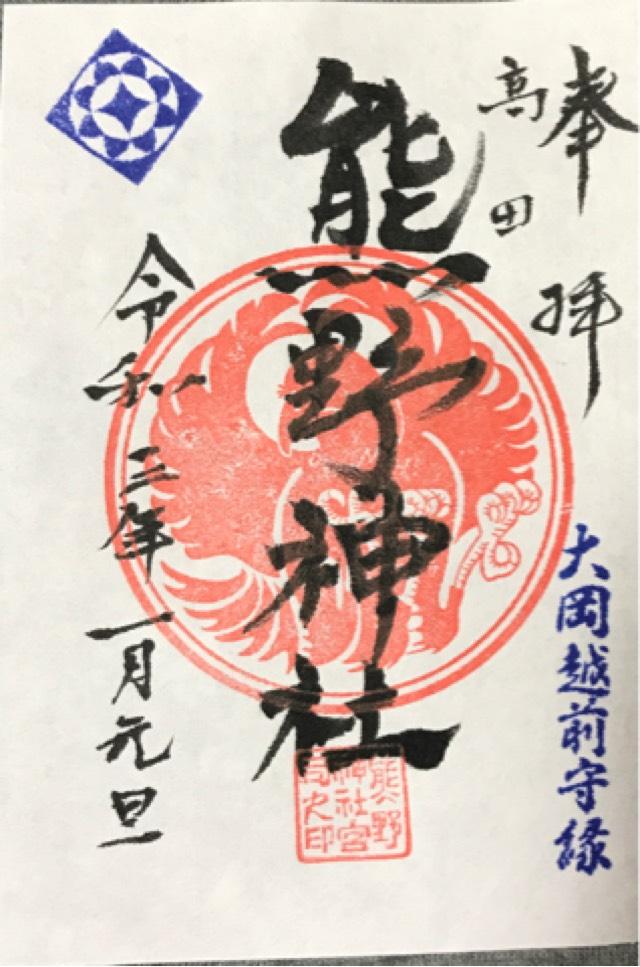 奉拝
高田
熊野神社
令和三年一月元旦
大岡越前守縁
熊野
神社宮
司之印